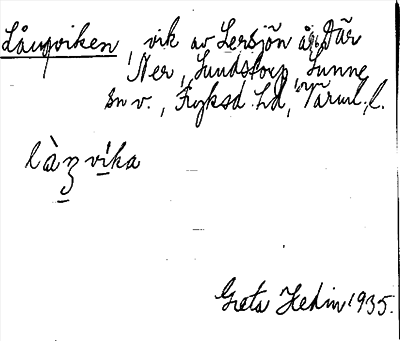 Långviken, vik av Lersjön
Ner, Sundstorp, Sunne
sn v., Fryksd. hd, Värml. l.
làʒ vika
Greta Hedin 1935.